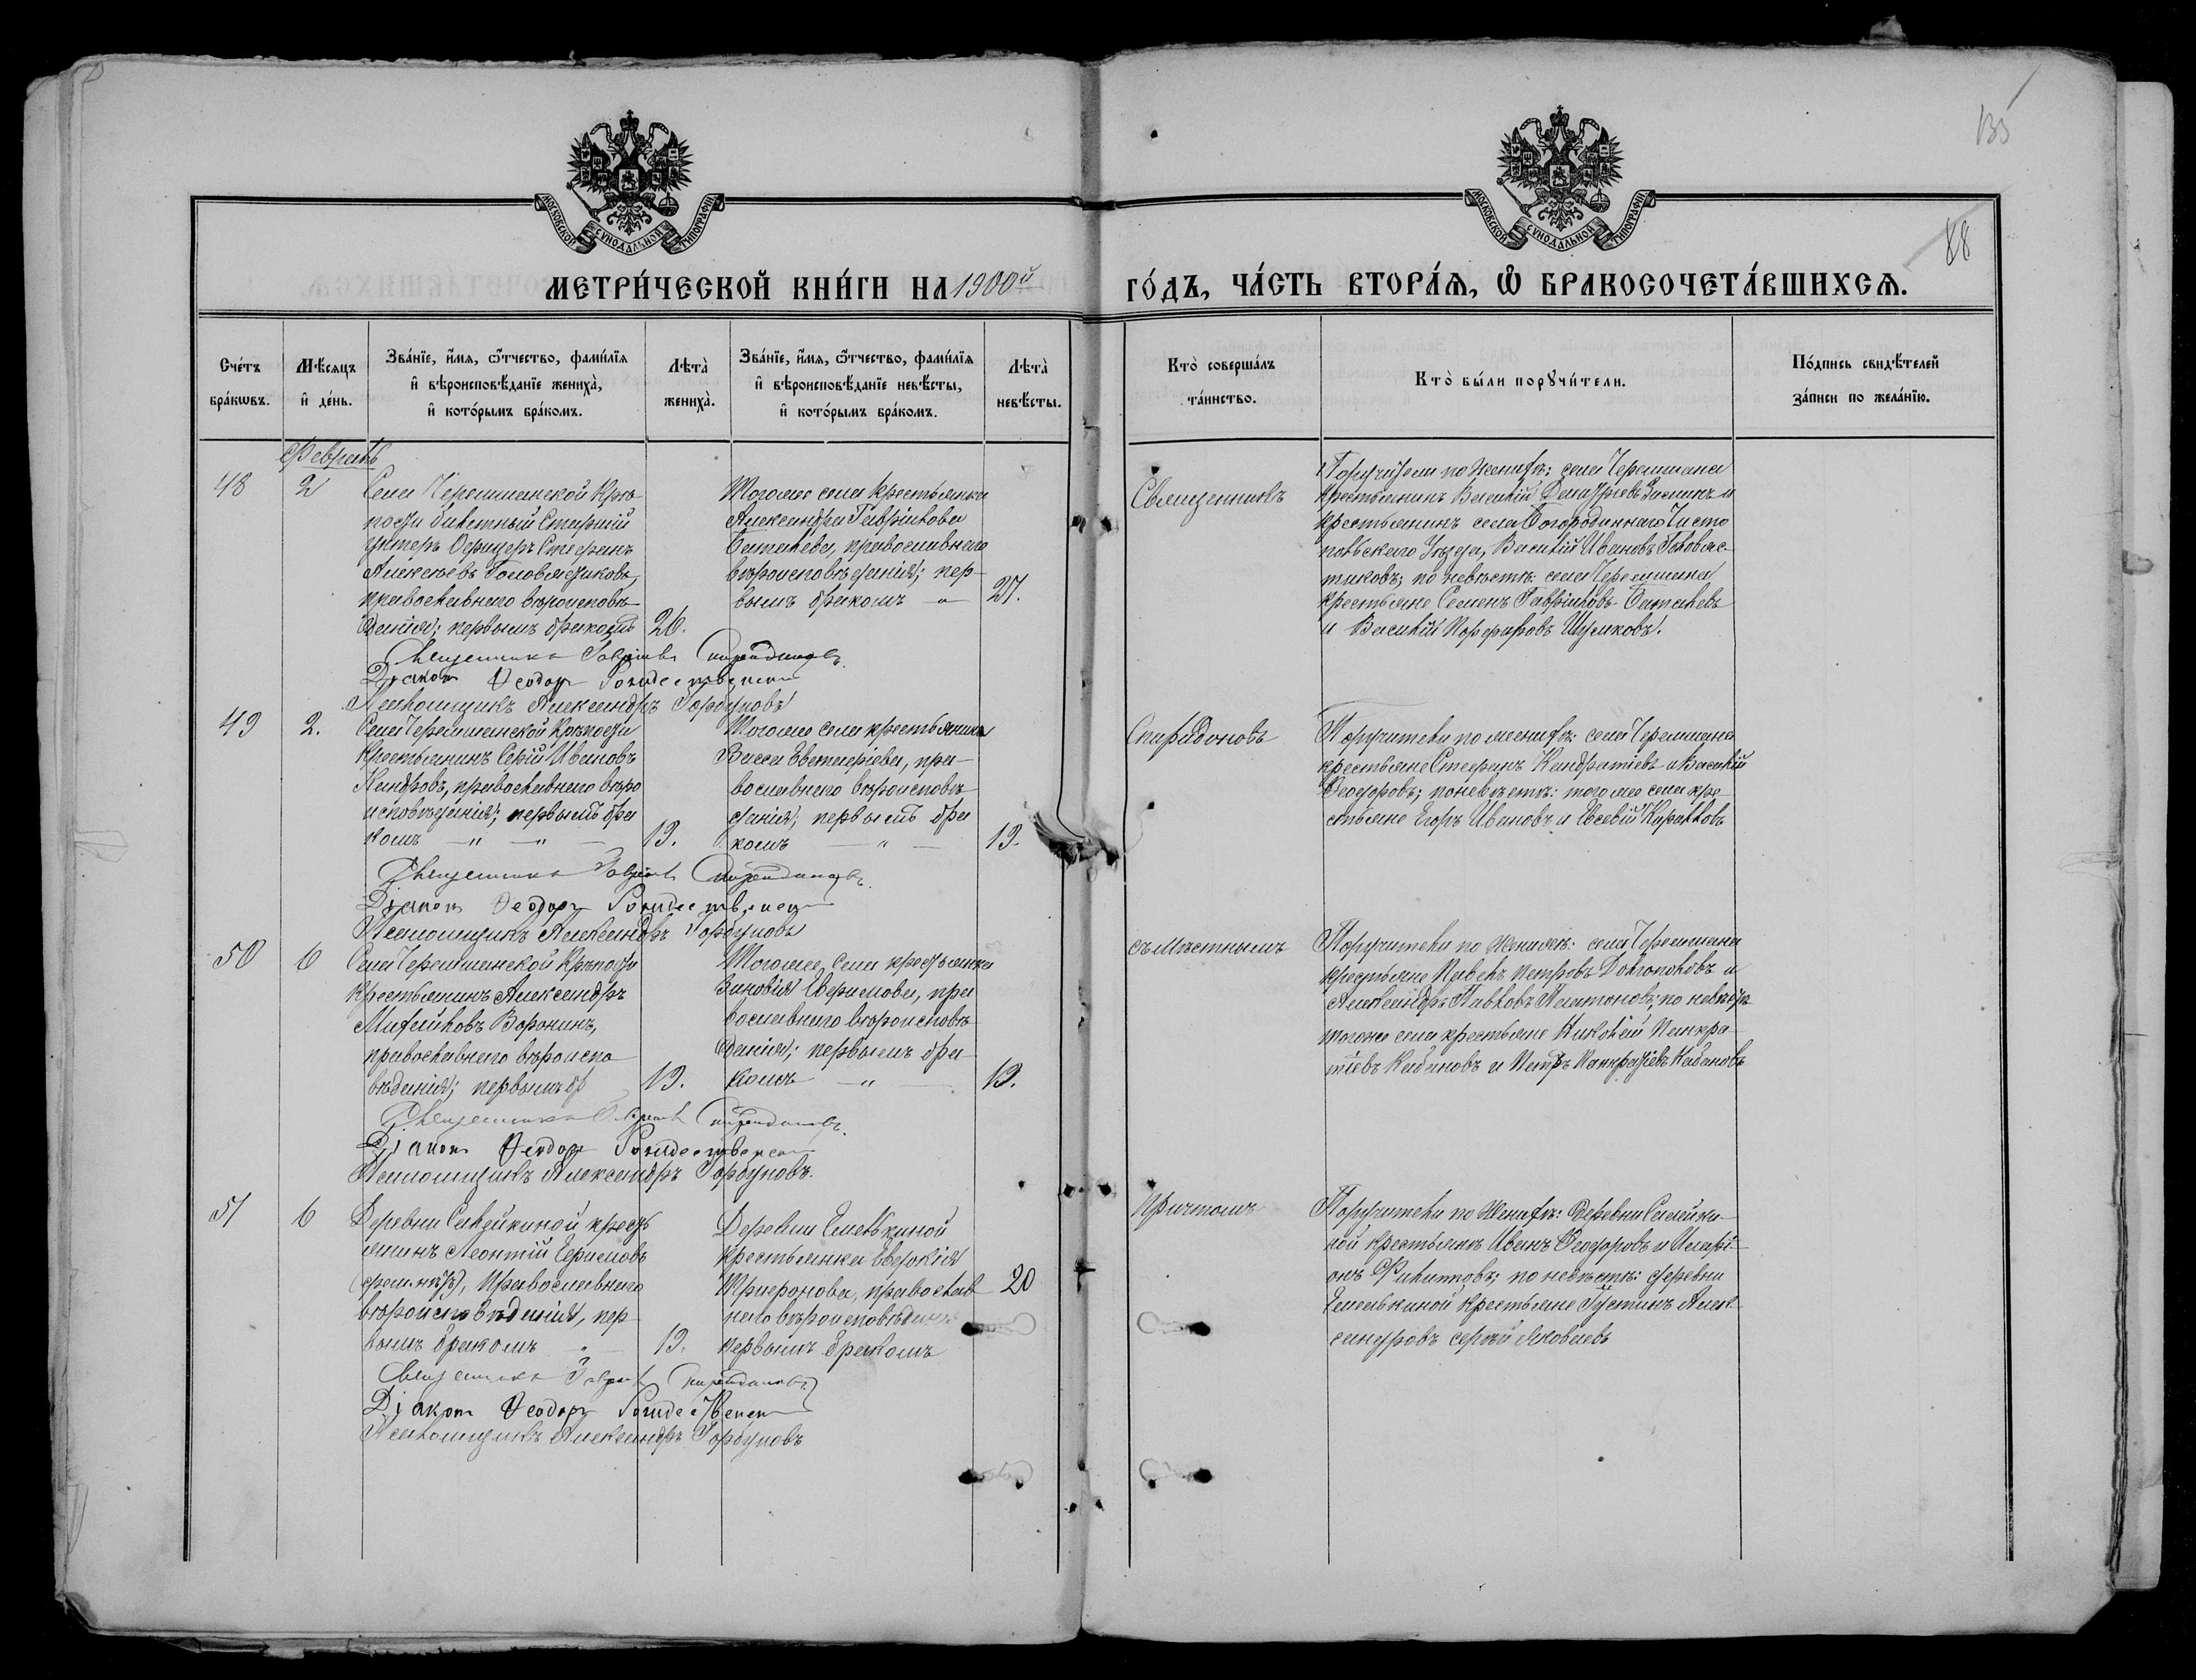 135
88
МОСКОВСКОЙ СУНОДАЛЬНОЙ ТИПОГРАФІИ
МОСКОВСКОЙ СУНОДАЛЬНОЙ ТИПОГРАФІИ
МЕТРИ́ЧЕСКОЙ КНИ́ГИ НА 1900й
ГО́ДЪ, ЧА́СТЬ ВТОРА́Я, Ѡ БРАКОСОЧЕТА́ВШИХСЯ.
Сче́тъ бра́кѡвъ.
Мѣ́сяцъ и҆ де́нь.
Зва́нїе, и҆́мя, ѻ҆́тчество, фами́лїя
и҆ вѣроисповѣ́данїе жениха̀,
и҆ кото́рымъ бра́комъ.
Лѣта̀ жениха̀.
Зва́нїе, и҆́мя, ѻ҆́тчество, фами́лїя
и҆ вѣроисповѣ́данїе невѣ́сты,
и҆ кото́рымъ бра́комъ.
Лѣта̀ невѣ́сты.
Кто̀ соверша́лъ та́инство.
Кто̀ бы́ли порꙋчи́тели.
По́дпись свидѣ́телей за́писи по жела́нїю.
Февраль
48
2
Села Черемшанской Крѣ-
пости билетный Старшій
Унтеръ Офицеръ Стефанъ
Алексѣевъ Головастиковъ,
православнаго вѣроисповѣ-
данія; первымъ бракомъ
26.
Тогоже села крестьянка
Александра Гаврилова
Баталева, православнаго
вѣроисповѣданія; пер-
вымъ бракомъ
27.
Священникъ
Поручители по женихѣ: села Черемшана
крестьянинъ Василій Зининъ и
крестьянинъ села Богородскаго Чисто
польскаго Уѣзда, Василій Ивановъ Головас-
тиковъ; по невѣстѣ: села Черемшана
крестьяне Семенъ Гавриловъ Баталевъ
и Василій Порфировъ
Священникъ Гавріилъ Спиридоновъ.
Діаконъ Ѳеодоръ Рождественскій
Псаломщикъ Александръ Горбуновъ
49
2.
Села Черемшанской Крѣпости
крестьянинъ Ивановъ
православнаго вѣро
исповѣданія; первымъ бра
комъ
19.
Тогоже села крестьянка
Васса Евтихіева, пра-
вославнаго вѣроисповѣ
данія; первымъ бра
комъ
19.
Спиридоновъ
Поручители по женихѣ: села Черемшана
крестьяне Стефанъ Кондратіевъ и Василій
Ѳеодоровъ; по невѣстѣ: того же села кре
стьяне Егоръ Ивановъ и Евсевій
Священникъ Гавріилъ Спиридоновъ.
Діаконъ Ѳеодоръ Рождественскій
Псаломщикъ Александръ Горбуновъ
50
6
Села Черемшанской Крѣпости
крестьянинъ Александръ
Михайловъ Воронинъ,
православнаго вѣроиспо
вѣданія; первымъ бр
19.
Тогоже села крестьянка
Зиновія Ефремова, пра
вославнаго вѣроисповѣ
данія; первымъ бра-
комъ
19.
съ мѣстнымъ
Поручители по женихѣ: села Черемшана
крестьяне Павелъ Петровъ Долгополовъ и
Александръ Павловъ Платоновъ; по невѣстѣ
тогоже села крестьяне Николай Панкра-
тіевъ Кабановъ и Петръ Панкратіевъ Кабановъ
Священникъ Гавріилъ Спиридоновъ.
Діаконъ Ѳеодоръ Рождественскій
Псаломщикъ Александръ Горбуновъ.
51
6
Деревни Савдейкиной кресть
янинъ Леонтій Ефремовъ
православнаго
вѣроисповѣданія, пер-
вымъ бракомъ
19.
Деревни Емелькиной
крестьянка Евдокія
Трифонова, православ
наго вѣроисповѣданія
первымъ бракомъ
20
причтомъ
Поручители по женихѣ:
крестьяне Иванъ Ѳеодоровъ и Иларі-
онъ Филипповъ; по невѣстѣ: деревни
Емелькиной крестьяне Густинъ Алек-
сандровъ Сергѣй Яковлевъ
Священникъ Гавріилъ Спиридоновъ
Діаконъ Ѳеодоръ Рождественскій
Псаломщикъ Александръ Горбуновъ